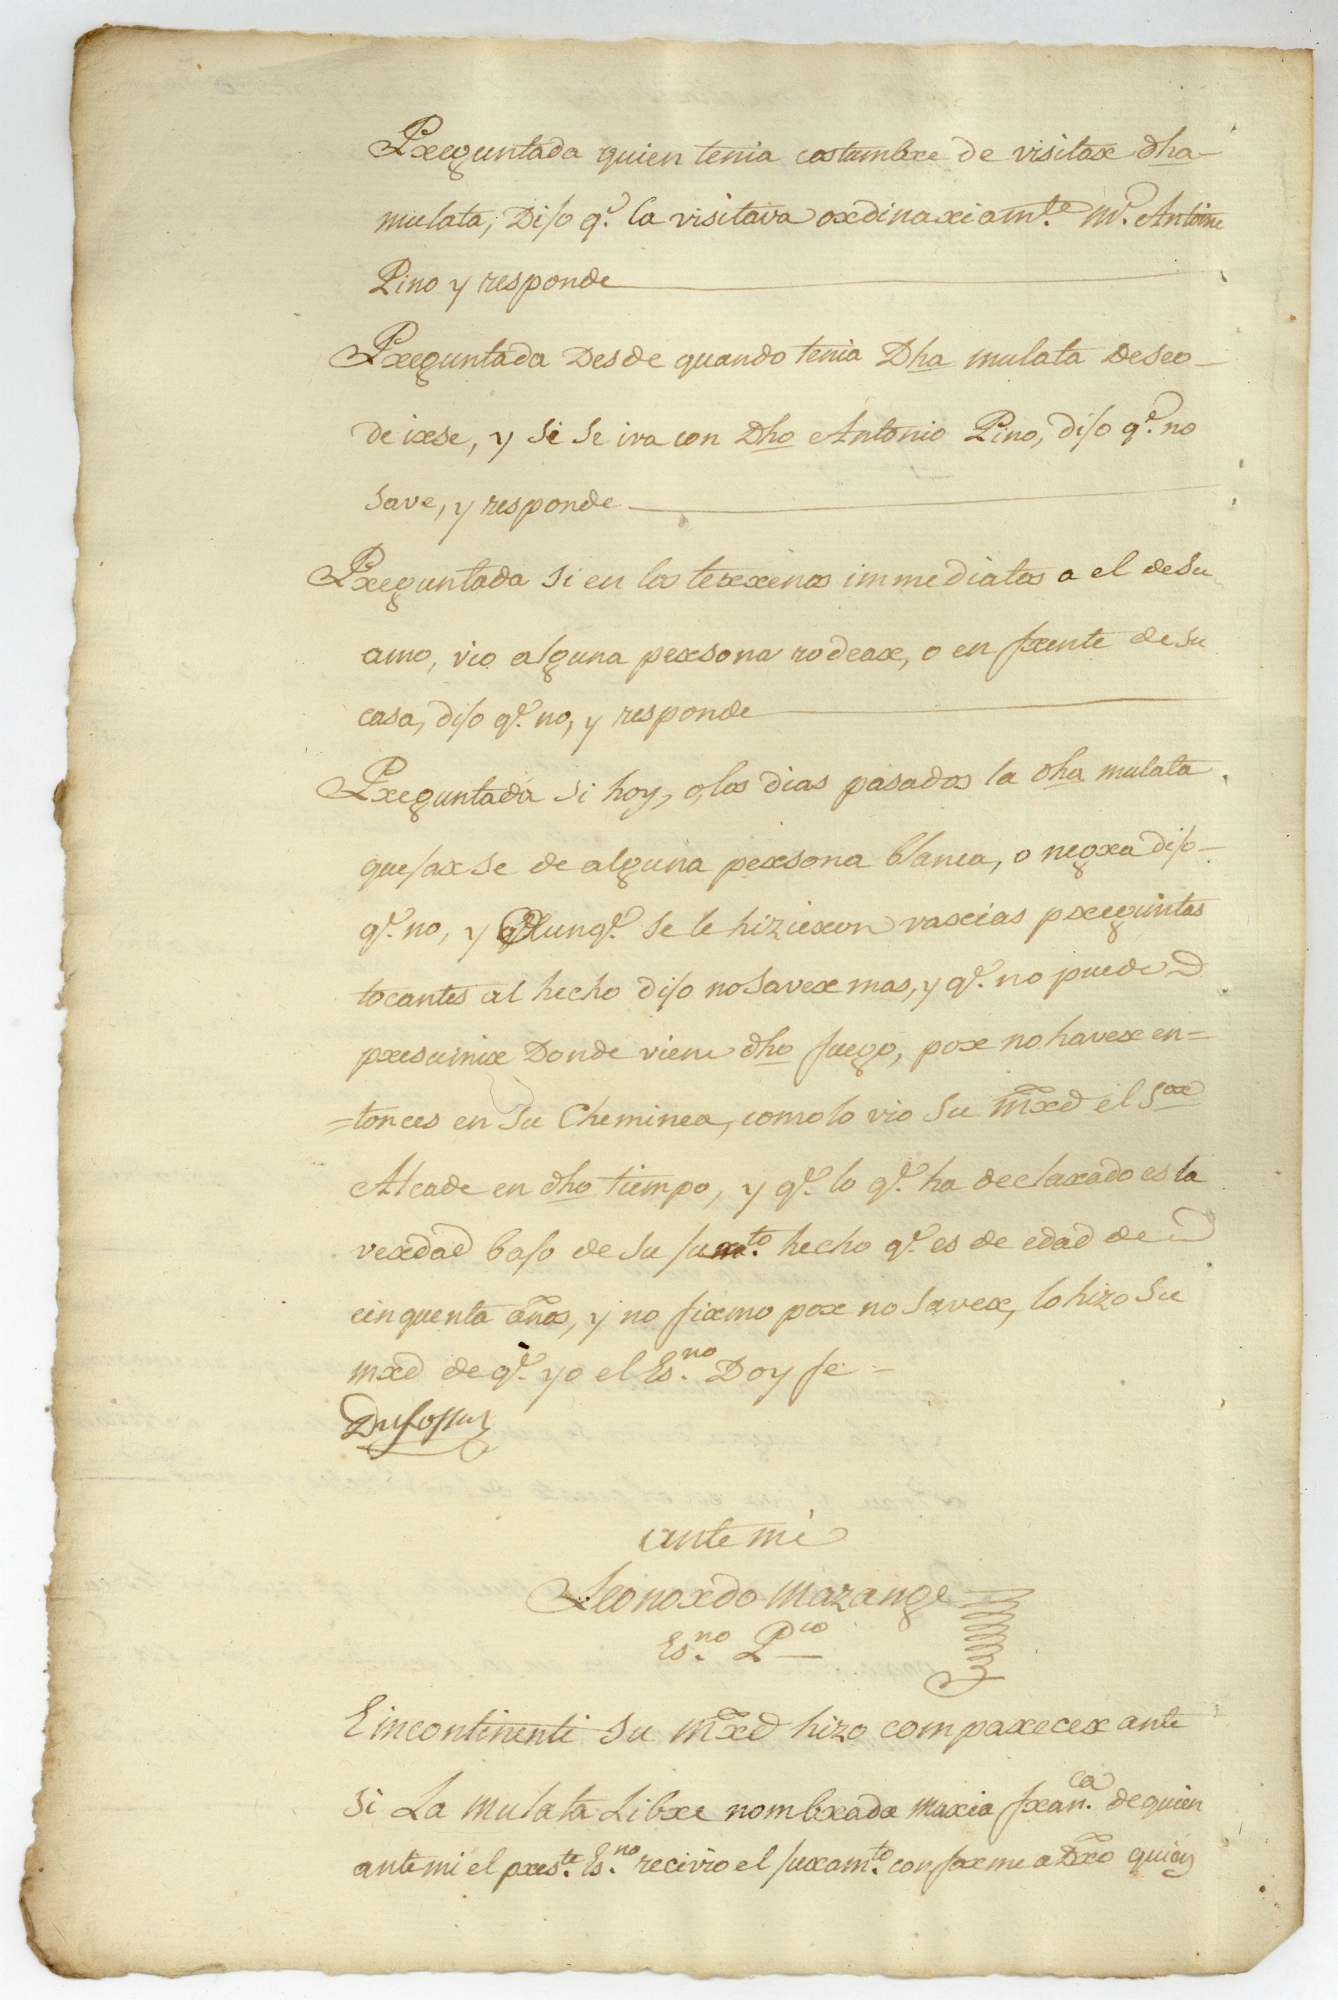 Preguntada quien tenia costumbre de visitar dha
mulata, Dijo q.e la visitava ordinariam.te M.r Antoine
Pino y responde
Preguntada Desde quando tenia Dha mulata deseo
de irse, y si se iva con Dho Antonio Pino, dijo q.e no
save, y responde
Preguntada si en los terrenos immediatos a el de su
amo, vio alguna persona rodear, o en frente de su
casa, dijo q.e no, y responde
Preguntada si hoy, o los dias pasados la dha mulata
quejarse de alguna persona blanca, o negra dijo
q.e no, y Aunq.e se le hizieron varias preguntas
tocantes al hecho dijo no saver mas, y q.e no puede
presumir Donde viene dho fuego, por no haver en=
=tonces en su Cheminea, como lo vio su mrd el S.or
Alcade en dho tiempo, y q.e lo q.e ha declarado es la
verdad bajo de su jur.to hecho q.e es de edad de
cinquenta años, y no firmo por no saver, lo hizo su
mrd de q.e yo el Es.no Doy fe =
Dufossat
ante mi
Leonardo Mazange
Es.no P.co
E incontinenti su mrd hizo comparecer ante
si La mulata Libre nombrada maria fran.ca de quien
ante mi el pres.te Es.no recivio el juram.to conforme a Dro quien